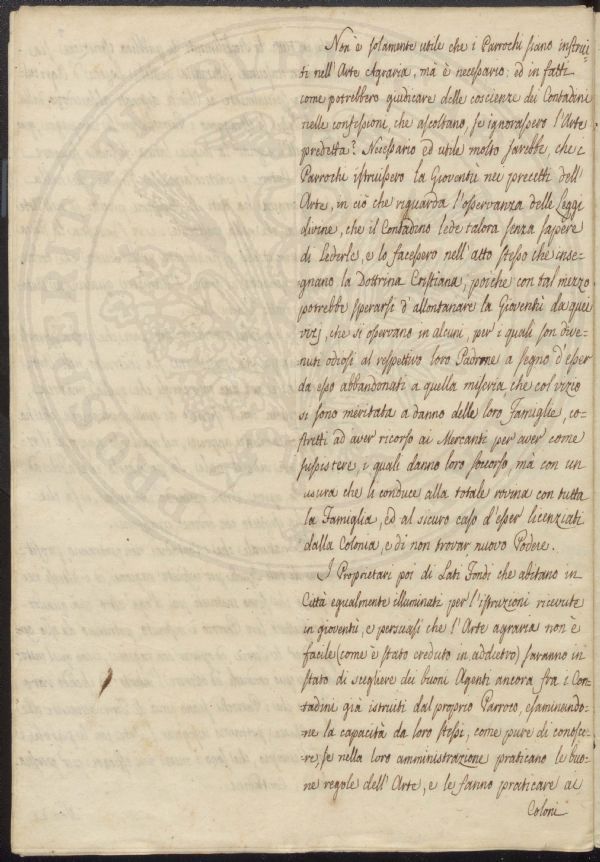 Non è solamente utile che i Parrochi siano instrui-
ti nell'Arte Agraria, mà è necessario: ed in fatti
come potrebbero giudicare delle coscienze dei Contadini
nelle confessioni, che ascoltano, se ignorassero l'Arte
predetta? Necessario ed utile molto sarebbe, che i
Parrochi istruissero la Gioventù nei precetti dell'
Arte, in ciò che riguarda l'osservanza delle Leggi
divine, che il Contadino lede talora senza sapere
di lederle, e lo facessero nell'atto stesso che inse-
gnano la Dottrina Cristiana; poiche con tal mezzo
potrebbe sperarsi d'allontanare la Gioventù da quei
vizj, che si osservano in alcuni, per i quali son dive-
nuti odiosi al respettivo loro Padrone a segno d'esser
da esso abbandonati a quella miseria, che col vizio
si sono meritata a danno delle loro Famiglie, co-
stretti ad aver ricorso ai Mercanti per aver come
sussistere, i quali danno loro soccorso, mà con un
usura che li conduce alla totale rovina con tutta
la Famiglia, ed al sicuro caso d'esser licenziati
dalla Colonia, e di non trovar nuovo Podere.
I Proprietari poi di Lati Fondi che abitano in
Città egualmente illuminati per l'istruzioni ricevute
in gioventù, e persuasi che l'Arte agraria non è
facile (come è stato creduto in addietro) saranno in
stato di scegliere dei buoni Agenti ancora fra i Con-
tadini già istruiti dal proprio Parroco, esaminando-
ne la capacità da loro stessi; come pure di conosce-
re, se nella loro amministrazione praticano le buo-
ne regole dell'Arte, e le fanno praticare ai
Coloni